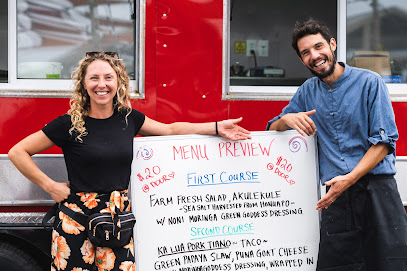 MENU PREVIEW
$20 @ DOOR
$20 @ DOOR
FIRST COURSE
FARM FRESH SALAD, AKULEKULE
~ SEA SALT HARVESTED FROM HONUAPO ~
W/ NONI MORINGA GREEN GODDESS DRESSING
SECOND COURSE
KALUA PORK TIANO ~ TACO ~
GREEN PAPAYA SLAW, PUNA GOAT CHEESE
GODDESS DRESSING, WRAPPED IN